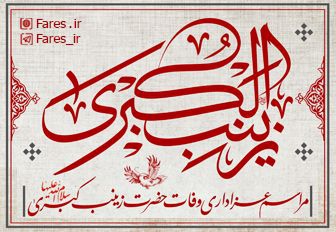 Fares.ir
Fares_ir
زینب الکبری
مراسم عزاداری وفات حضرت زینب کبری سلام الله علیها